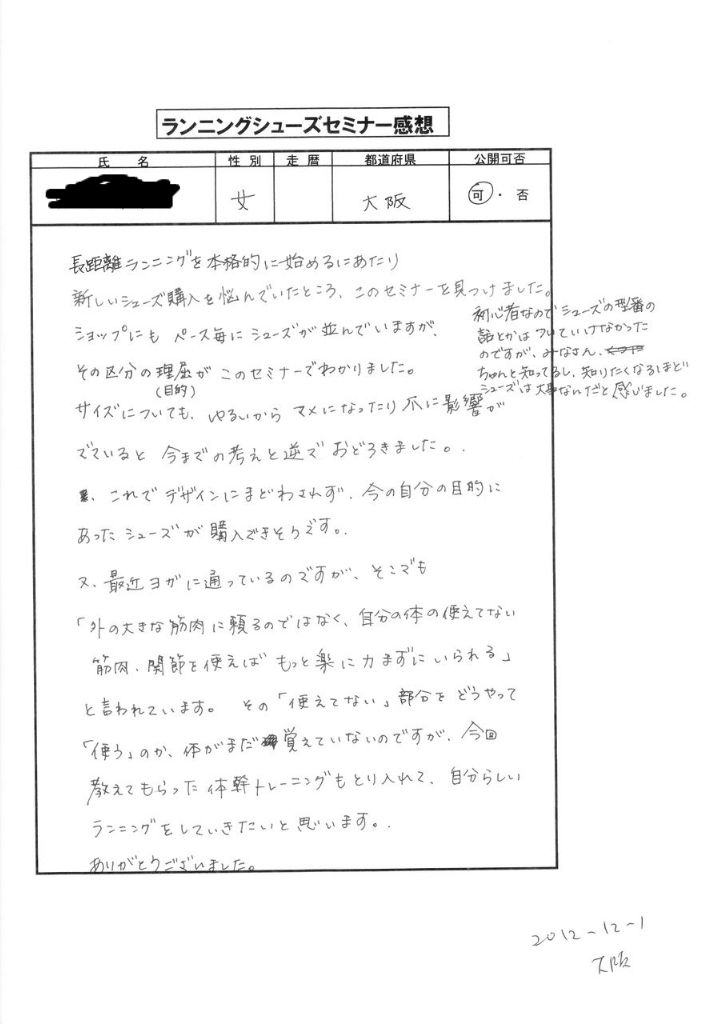 ランニングシューズセミナー感想
氏 名
性 別
走 暦
都道府県
公開可否
女
大阪
可・否
長距離ランニングを本格的に始めるにあたり
新しいシューズ購入を悩んでいたところ、このセミナーを見つけました。
ショップにも ペース毎にシューズが並んでいますが、
その区分の理屈がこのセミナーでわかりました。
(目的)
サイズについても、ゆるいから マメになったり爪に影響が
でていると 今までの考えと逆で おどろきました。
これで デザインにまどわされず、今の自分の目的に
あったシューズが購入できそうです。
又、最近ヨガに通っているのですが、そこでも
「外の大きな筋肉に頼るのではなく、自分の体の使えてない
筋肉、関節を使えば もっと楽に力まずにいられる」
と言われています。 その「使えてない」部分を どうやって
「使う」のか、体がまだ覚えていないのですが、今回
教えてもらった体幹トレーニングもとり入れて、自分らしい
ランニングをしていきたいと思います。
ありがとうございました。
初心者なのでシューズの型番の
話とかはついていけなかった
のですが、みなさん、
ちゃんと知ってるし、知りたくなるほど
シューズは大事なんだと感じました。
2012-12-1
大阪